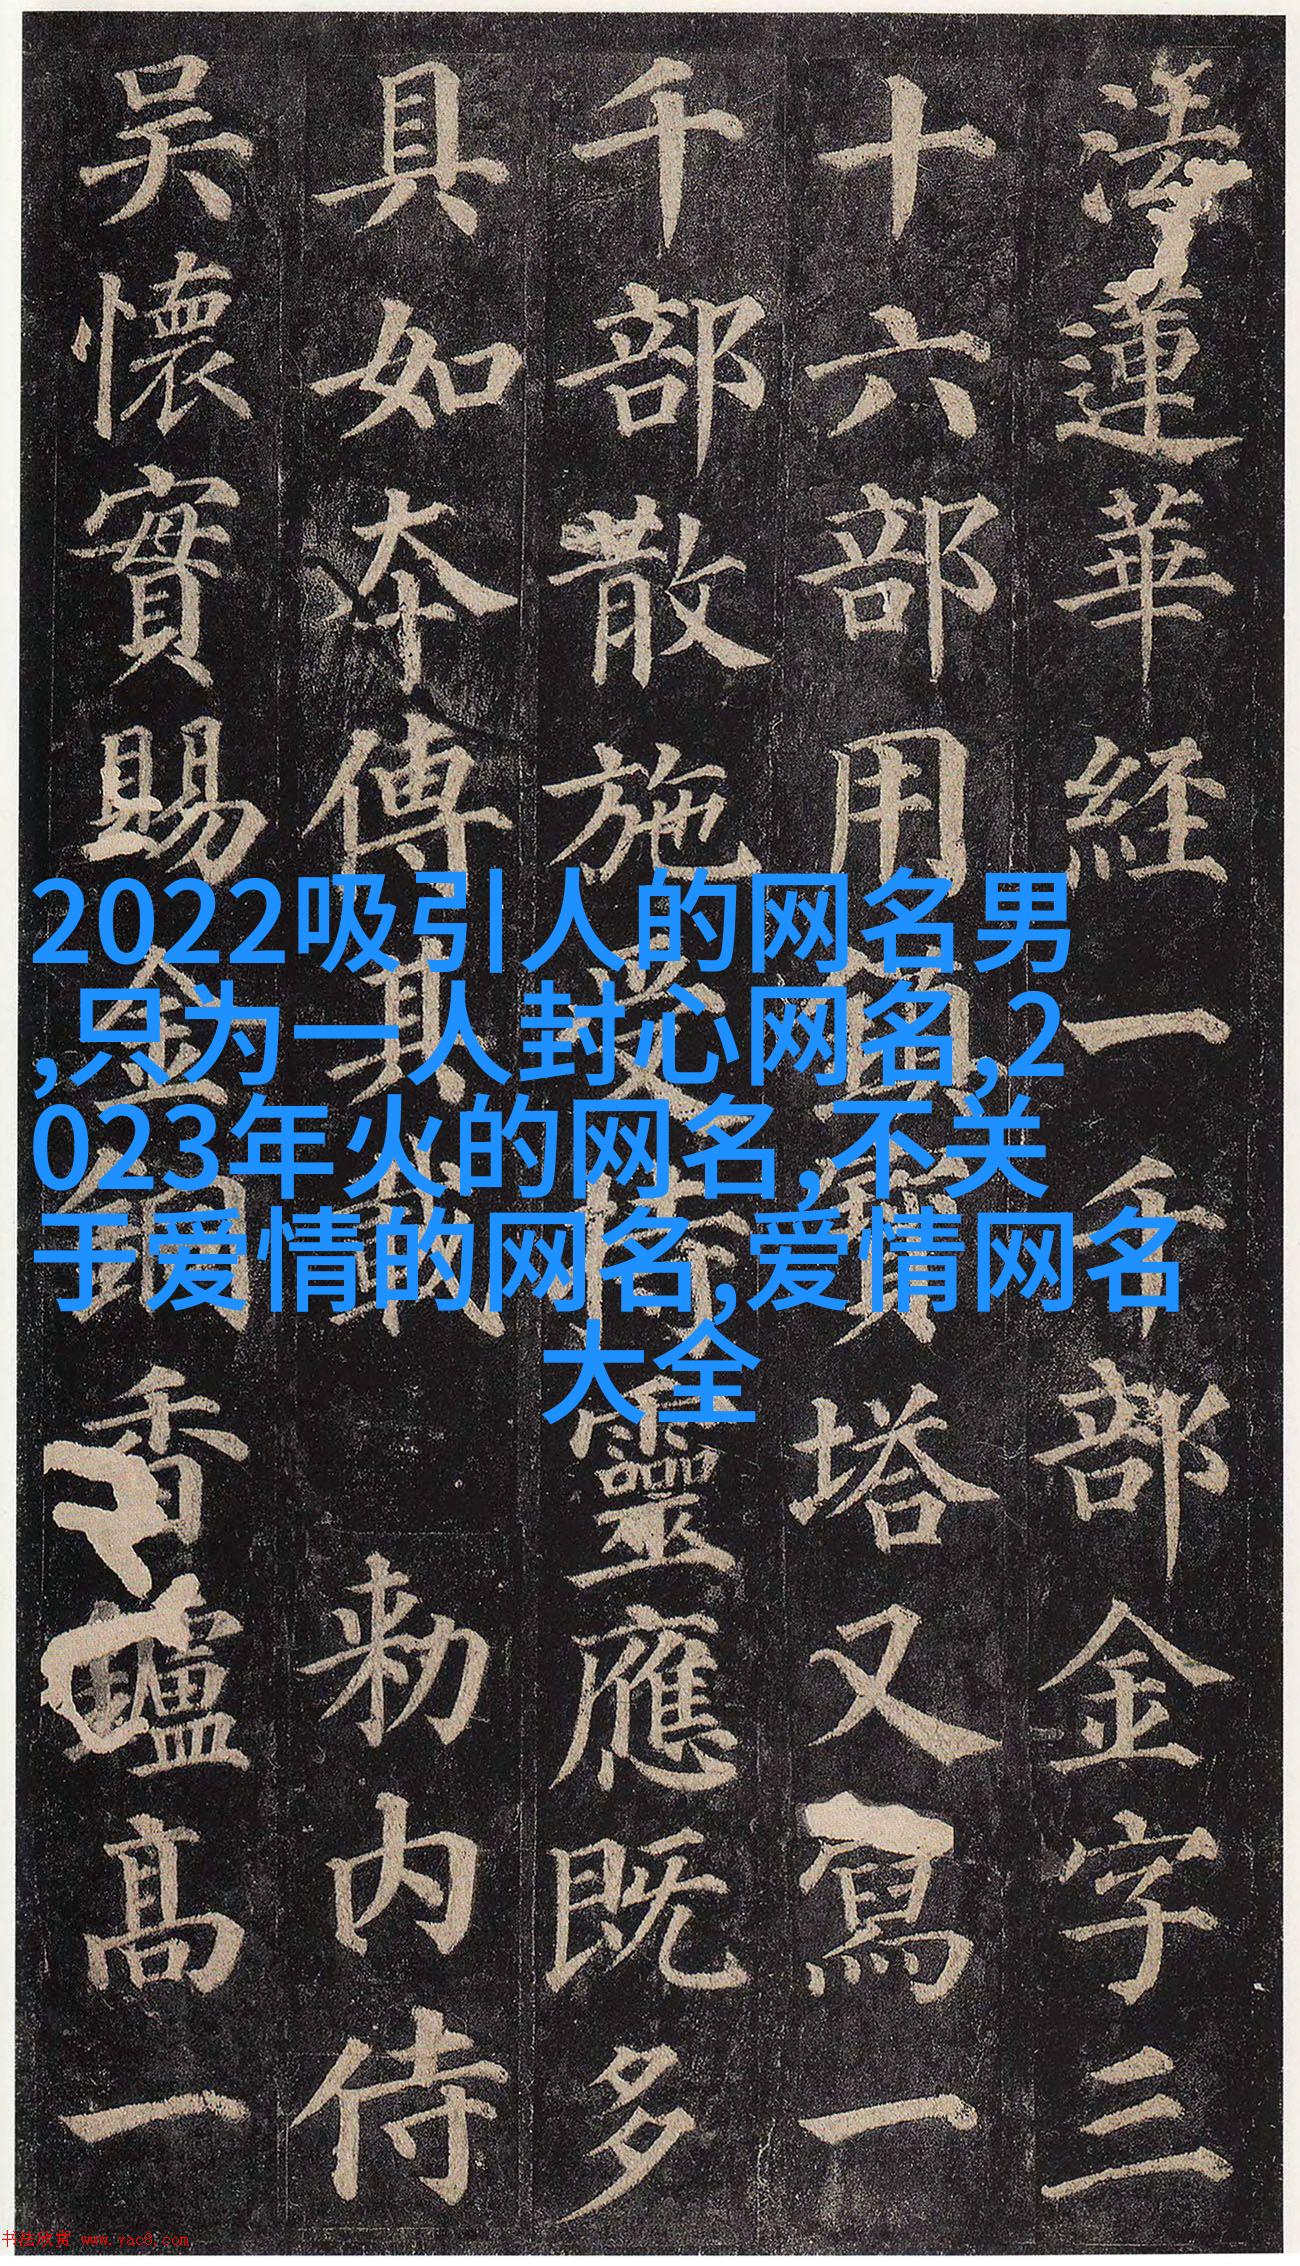 法蓮華経一千部金字三
十六部用鎮寶塔又寫一
千部散施受持靈應既多
具如夲傳其載勅内侍
吳懷實賜金銅香鑪髙一
2022吸引人的网名男
,只为一人封心网名,2
023年火的网名,不关
于爱情的网名,爱情网名
大全
书法欣赏 www.yac8.com